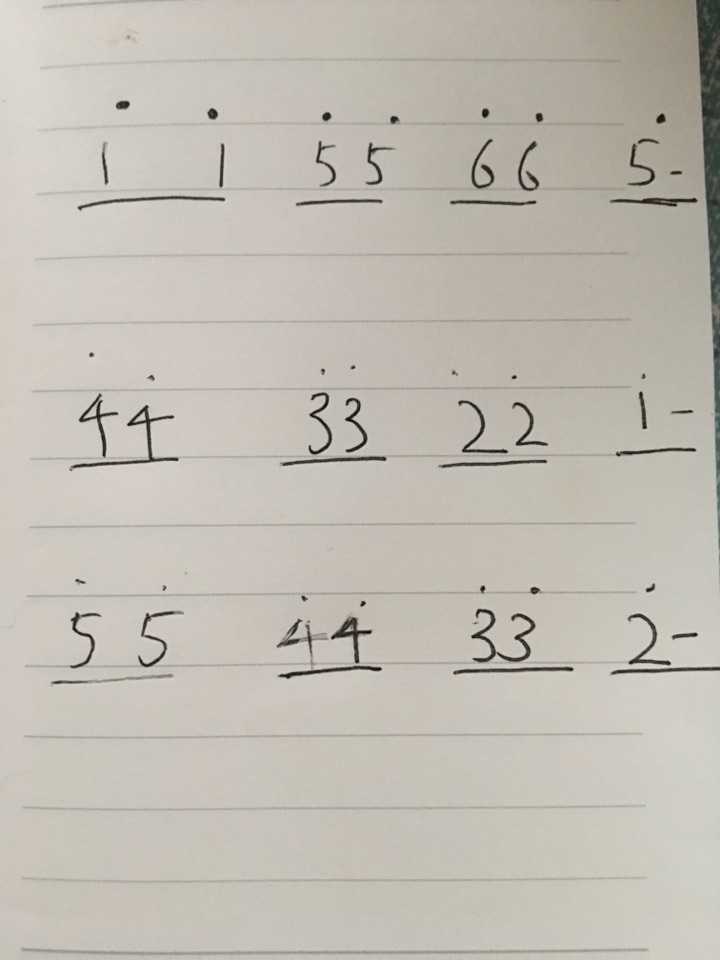 1̇ 1̇ 5̇ 5̇ 6̇ 6̇ 5̇ -
4̇ 4̇ 3̇ 3̇ 2̇ 2̇ 1̇ -
5̇ 5̇ 4̇ 4̇ 3̇ 3̇ 2̇ -